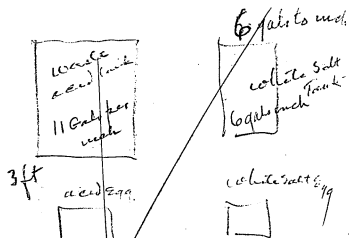 6 gals to inch
Waste
acid tank
11 Gals per
inch
White Salt
Tank
6 gals inch
3 ft
acid Egg
White Salt Egg